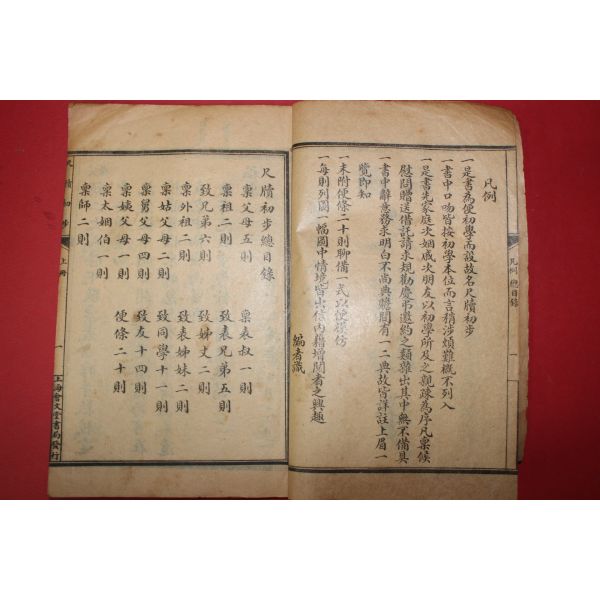 凡例
一是書為便初學而設故名尺牘初步
一書中口吻皆按初學本位而言稍涉煩難概不列入
一是書先家庭次姻戚次朋友以初學所及之親疎為序凡稟候
慰問贈送借託請求規勸慶弔邀約之類雖出其中無不備具
一書中辭意務求明白不尚典贍間有一二典故皆詳註上眉一
覽即知
一末附便條二十則聊備一式以便摸仿
一每則列圖一幅圖中情境皆出信內藉增閱者之興趣
編者識
凡例 總目錄
一
尺牘初步總目錄
稟父母五則
稟祖二則
致兄弟六則
稟外祖二則
稟姑父母二則
稟舅父母四則
稟姨父母一則
稟太姻伯一則
稟師二則
稟表叔一則
致表兄弟五則
致姊丈二則
致表姊妹二則
致同學十一則
致友十四則
便條二十則
尺牘初步
上冊
一
上海會文堂書局發行